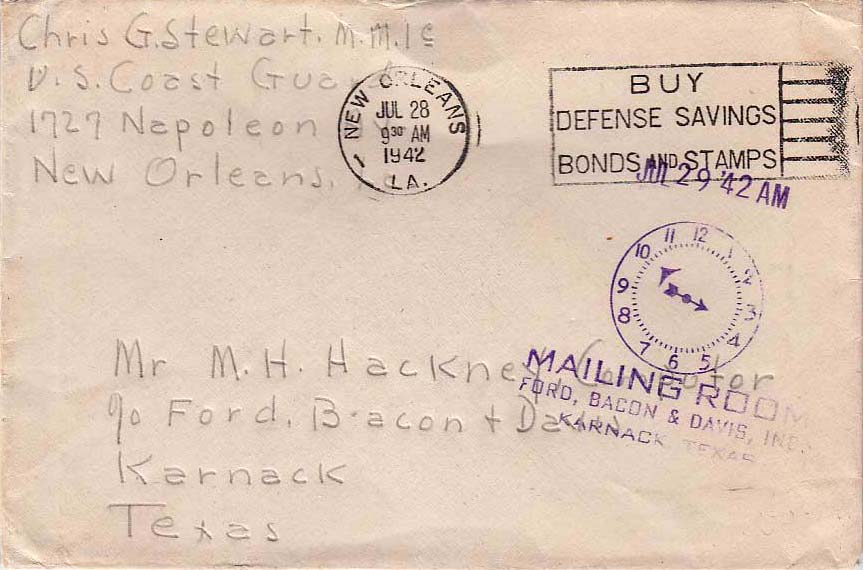 Chris G. Stewart. M.M.1c
U.S. Coast Guard
1727 Napoleon
New Orleans,
NEW ORLEANS
JUL 28
9 30 AM
1942
LA.
BUY
DEFENSE SAVINGS
BONDS AND STAMPS
JUL 29 '42 AM
12 1 2 3 4 5 6 7 8 9 10 11
MAILING ROOM
FORD, BACON & DAVIS, INC.
KARNACK TEXAS
Mr M. H. Hackney
c/o Ford, Beacon + Davis
Karnack
Texas